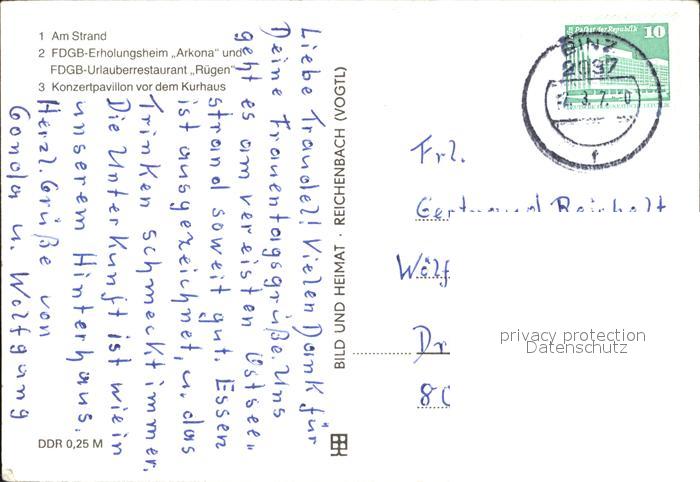 1 Am Strand
2 FDGB-Erholungsheim „Arkona“ und
FDGB-Urlauberrestaurant „Rügen“
3 Konzertpavillon vor dem Kurhaus
Liebe Traudel! Vielen Dank für
Deine Frauentagsgrüße. Uns
geht es am vereisten Ostsee„
strand soweit gut. Essen
ist ausgezeichnet, u. das
Trinken schmeckt immer.
Die Unterkunft ist wie in
unserem Hinterhaus.
Herzl. Grüße von
Gonda u. Wolfgang
DDR 0,25 M
BILD UND HEIMAT · REICHENBACH (VOGTL)
Palast der Republik 10
BINZ
2337
f
Frl.
Gertraud Reinhelt
Wölf
Dr
80
privacy protection
Datenschutz